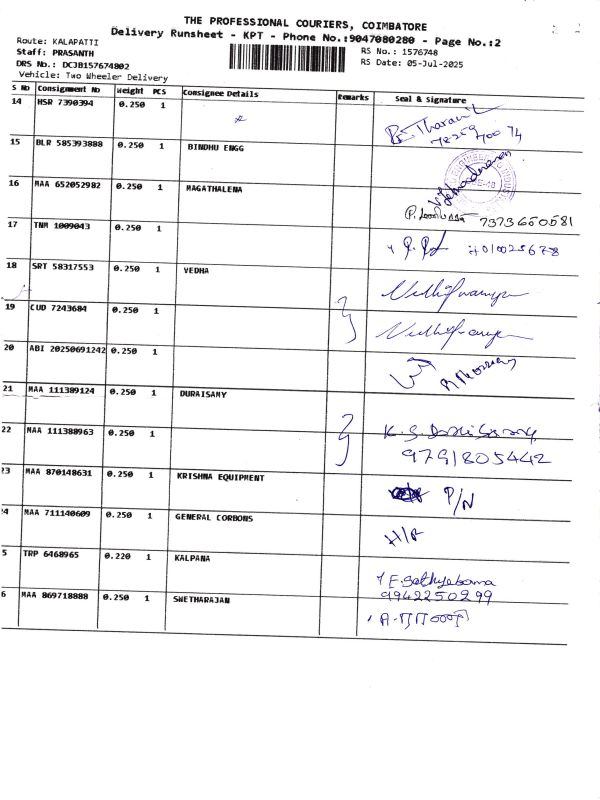 THE PROFESSIONAL COURIERS, COIMBATORE
Delivery Runsheet - KPT - Phone No.:9047080280 - Page No.:2
Route: KALAPATTI
Staff: PRASANTH
DRS No.: DCJB157674802
Vehicle: Two Wheeler Delivery
RS No.: 1576748
RS Date: 05-Jul-2025
S No Consignment No Weight PCS Consignee Details Remarks Seal & Signature
14 HSR 7390394 0.250 1
15 BLR 585393888 0.250 1 BINDHU ENGG
16 MAA 652052982 0.250 1 MAGATHALENA
7373650581
17 TNM 1009043 0.250 1
18 SRT 58317553 0.250 1 VEDHA
19 CUD 7243684 0.250 1
20 ABI 20250691242 0.250 1
21 MAA 111389124 0.250 1 DURAISAMY
22 MAA 111388963 0.250 1
9791805442
23 MAA 870148631 0.250 1 KRISHNA EQUIPMENT P/N
24 MAA 711140609 0.250 1 GENERAL CORBONS
5 TRP 6468965 0.220 1 KALPANA
E. Sathyabama
9942250299
6 MAA 869718888 0.250 1 SWETHARAJAN